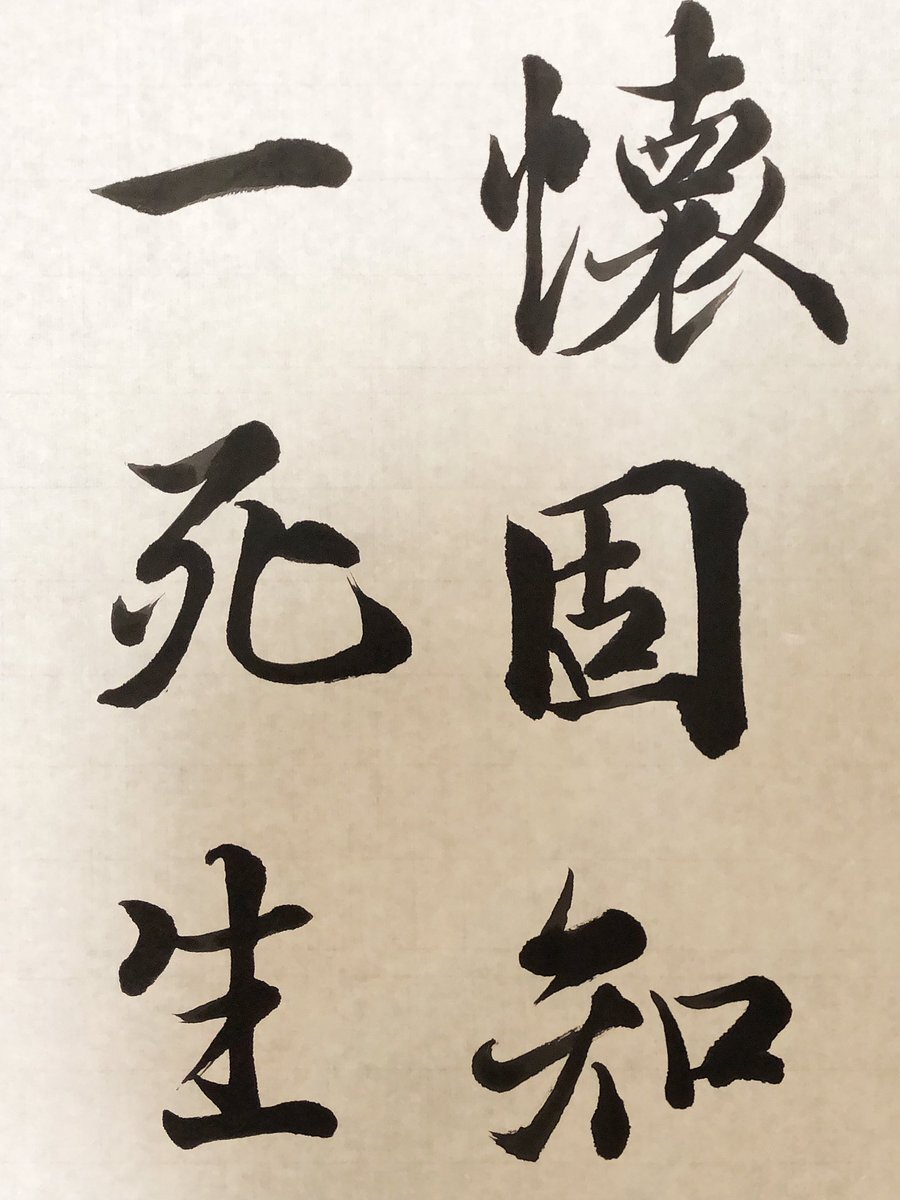 懐固知
一死生